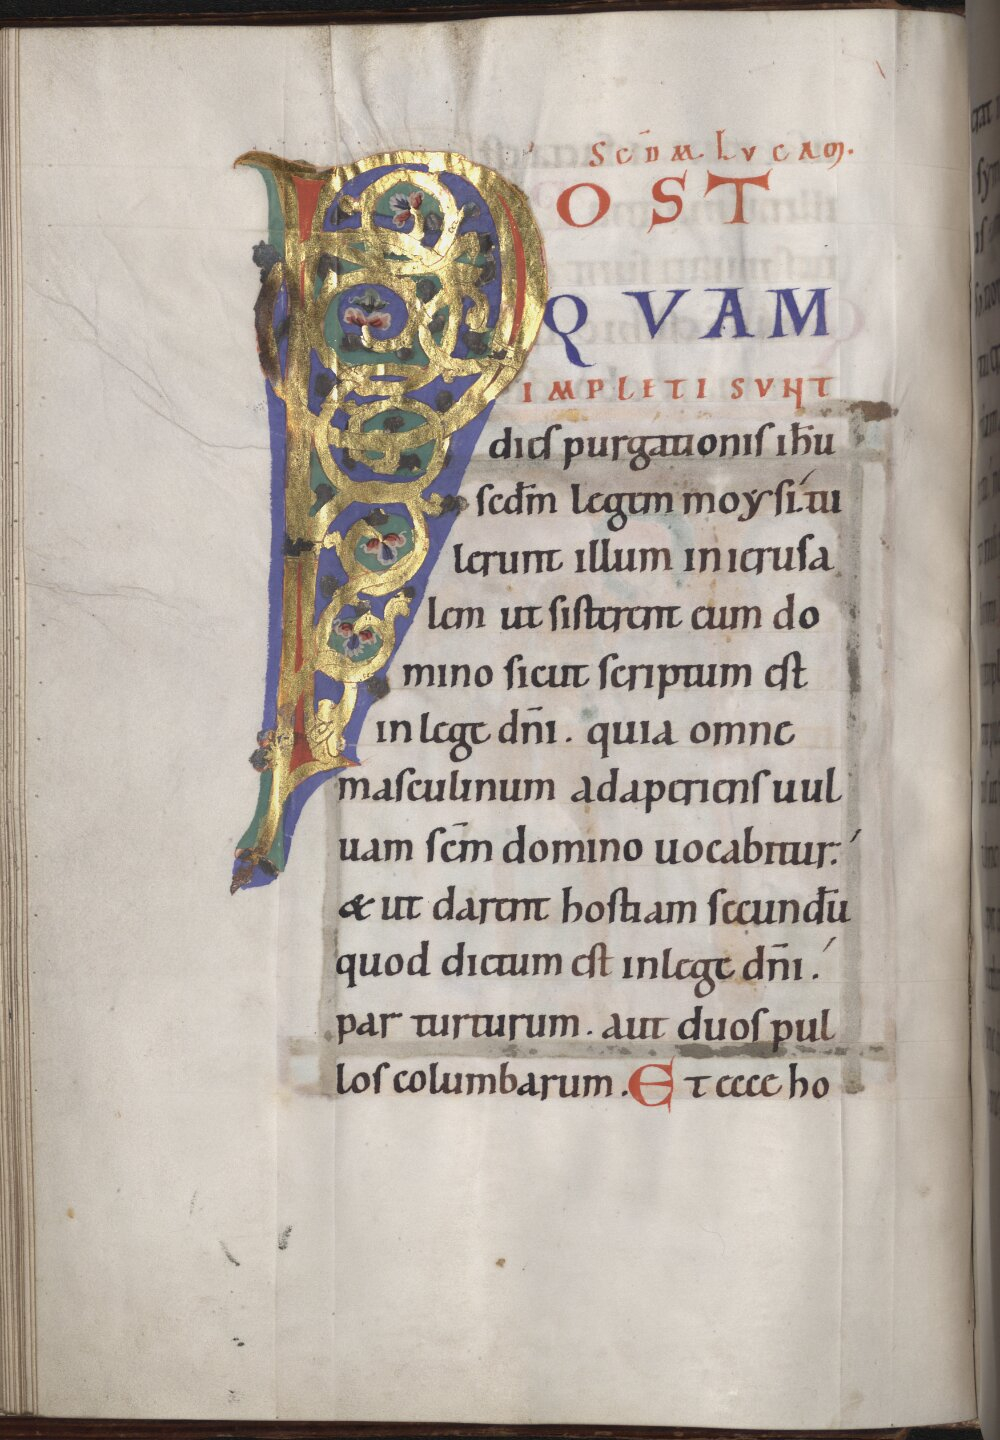 SCD̄M LVCAM.
POST
QVAM
IMPLETI SVNT
dies purgationis ih̄u
scd̄m legem moysi. tu
lerunt illum in ierusa
lem ut sisterent eum do
mino sicut scriptum est
in lege dn̄i. quia omne
masculinum adaperiens uul
uam sc̄m domino uocabitur.
& ut darent hostiam secundū
quod dictum est in lege dn̄i.
par turturum. aut duos pul
los columbarum. Et ecce ho